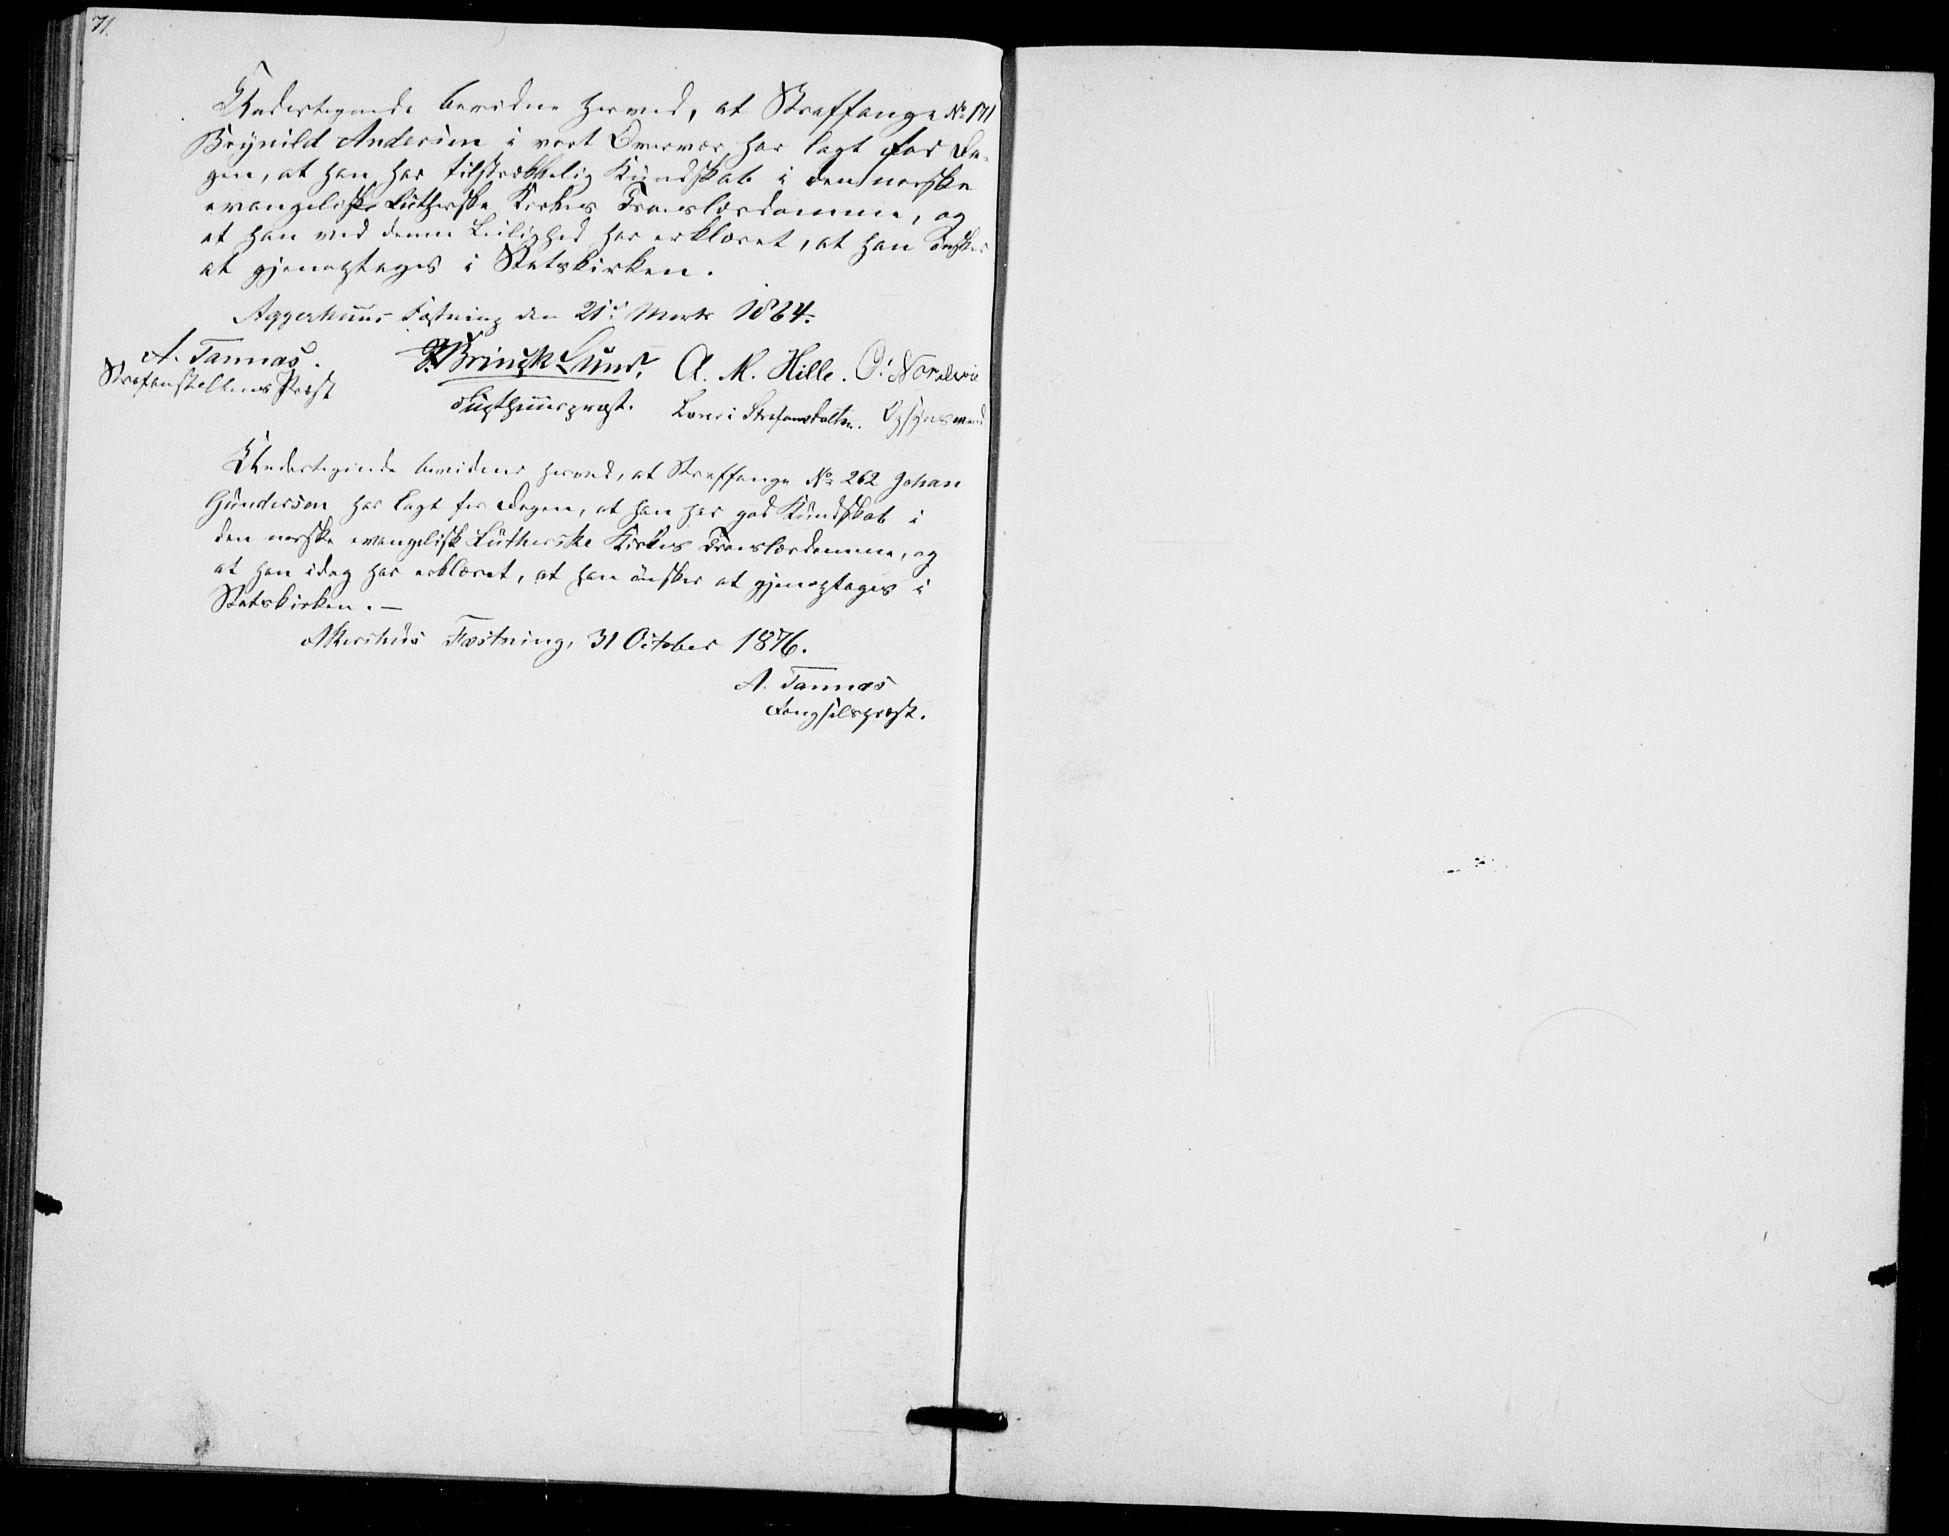 71.
Undertegnede bevidne herved, at Straffange No 171
Brynild Andersen i vort Overvær har lagt for Da-
gen, at han har tilstrækkelig Kundskab i den norske
evangeliske lutherske Kirkes Troeslærdomme, og
at han ved denne Leilighed har erklæret, at han ønsker
at gjenoptages i Statskirken.
Aggershuus Fæstning den 21de Marts 1864.
A. Tannæs. Brinch Lund. A. M. Hille. O.
Strafanstaltens Præst Tugthuuspræst. Lærer i Strafanstalten. Opsynsmand
Undertegnede bevidner herved, at Straffange No 262 Johan
Gundersen har lagt for Dagen, at han har god Kundskab i
den norske evangelisk lutherske Kirkes Troeslærdomme, og
at han idag har erklæret, at han ønsker at gjenoptages i
Statskirken. —
Akershus Fæstning, 31 October 1876.
A. Tannæs
Fængselspræst.